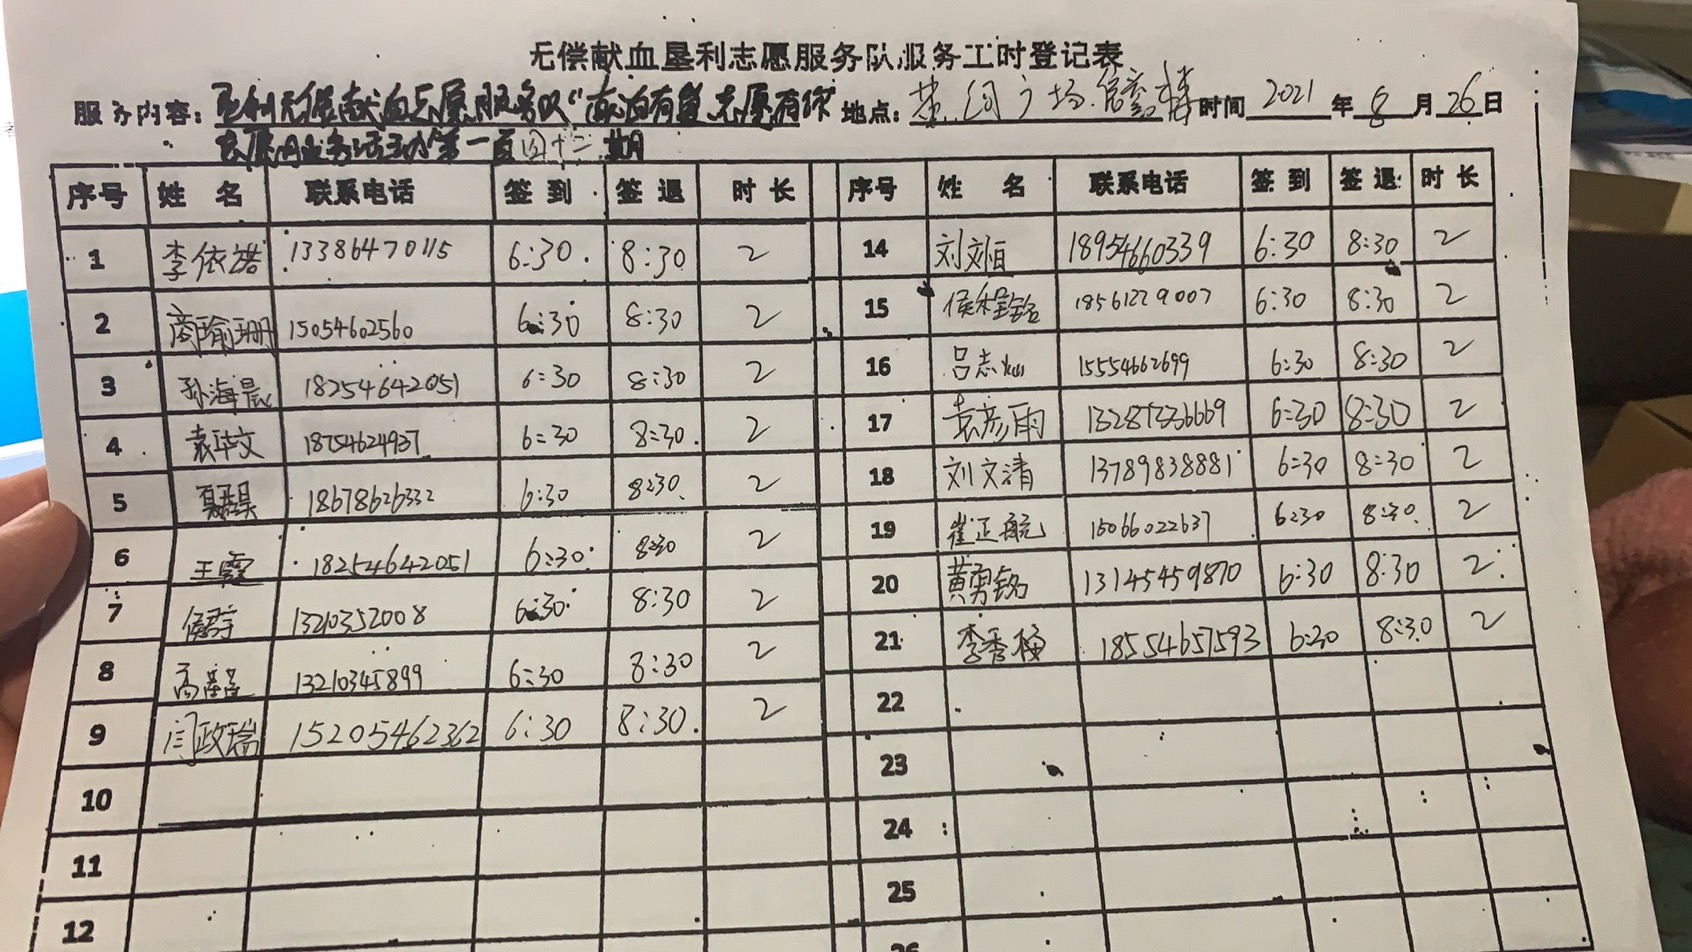 无偿献血垦利志愿服务队服务工时登记表
服务内容：垦利无偿献血志愿服务队“献血有我 志愿有你 地点：黄河广场.信誉楼 时间 2021 年 8 月 26 日
志愿服务活动第一百四十二期
序号 姓 名 联系电话 签 到 签 退 时 长 序号 姓 名 联系电话 签 到 签 退 时 长
1 李依诺 13386470115 6:30 8:30 2 14 刘文恒 18954660339 6:30 8:30 2
2 商瑜珊 15054602560 6:30 8:30 2 15 侯程铭 18561229007 6:30 8:30 2
3 孙海晨 18254642051 6:30 8:30 2 16 吕志灿 15554662699 6:30 8:30 2
4 袁华文 18754624937 6:30 8:30 2 17 袁彦雨 13287336669 6:30 8:30 2
5 18678626332 6:30 8:30 2 18 刘文清 13789838881 6:30 8:30 2
6 王霞 18254642051 6:30 8:30 2 19 崔正航 15066022637 6:30 8:30 2
7 13210352008 6:30 8:30 2 20 黄勇铭 13145459870 6:30 8:30 2
8 高 13210345899 6:30 8:30 2 21 李秀梅 18554657593 6:30 8:30 2
9 闫政瑞 15205462362 6:30 8:30 2 22
10 23
11 24
12 25
26